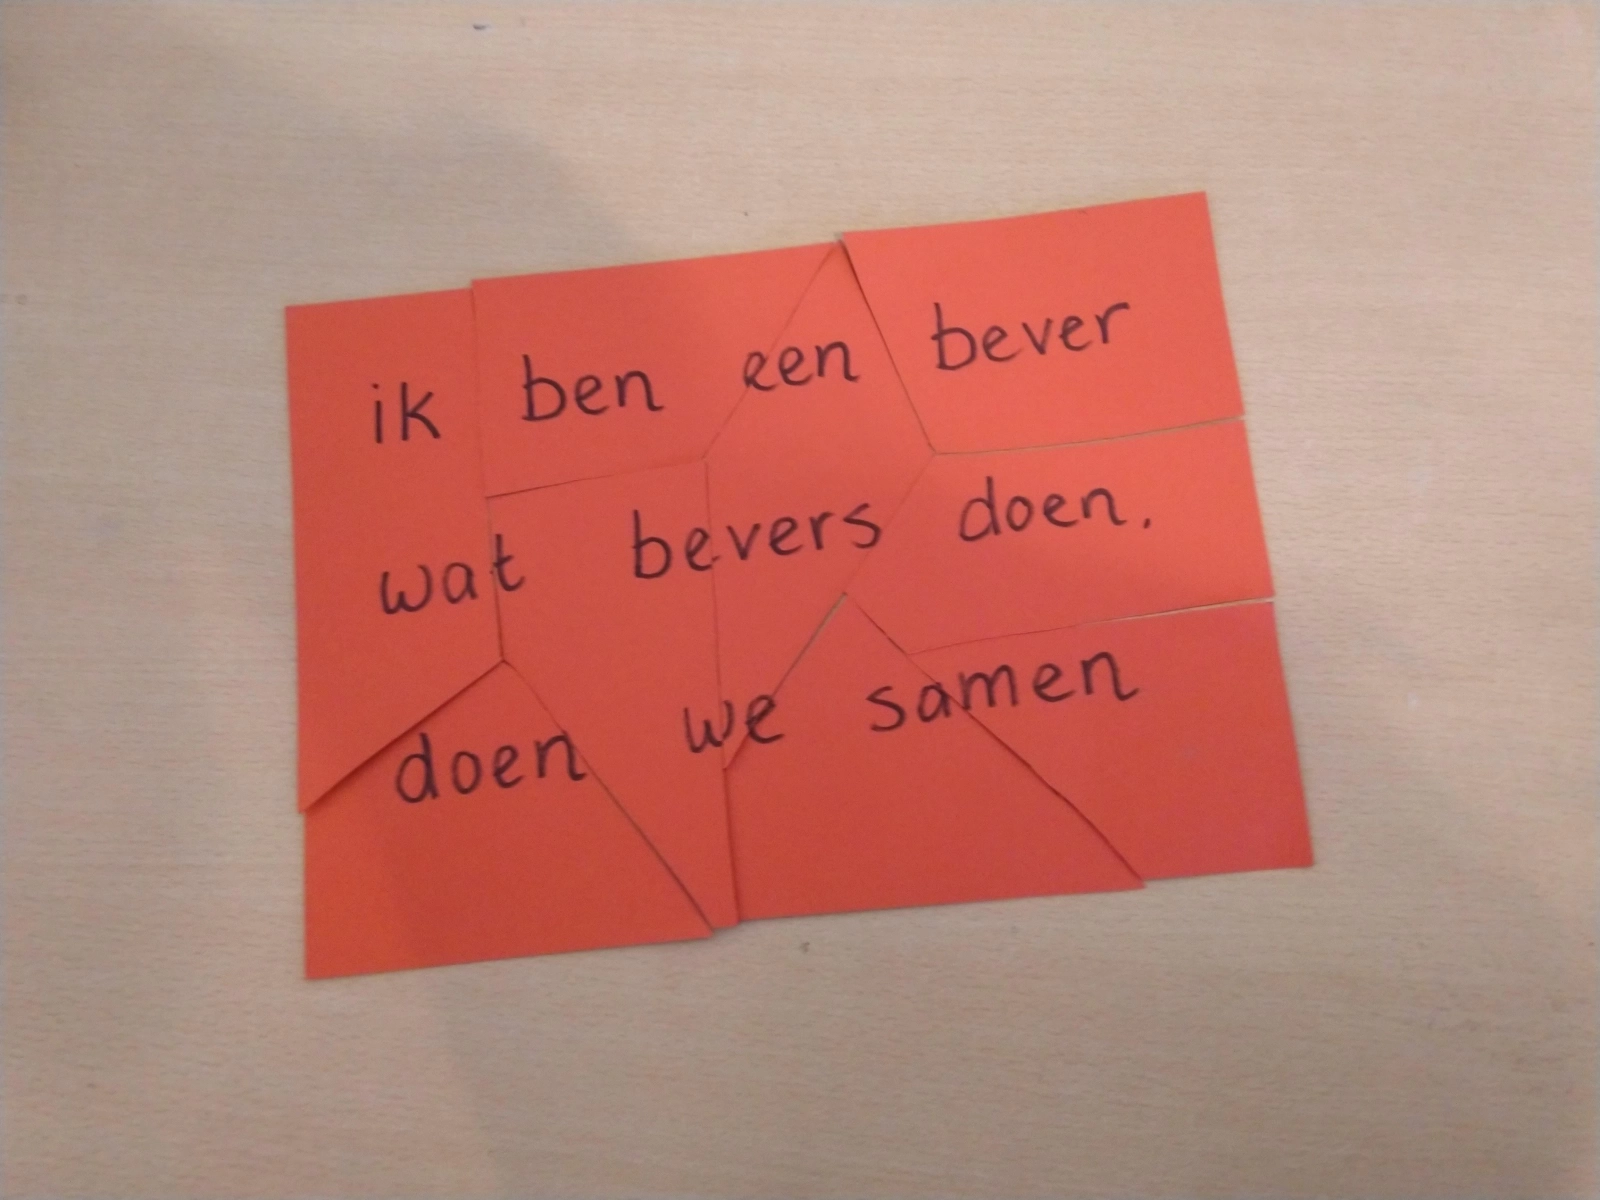 ik ben een bever
wat bevers doen.
doen we samen